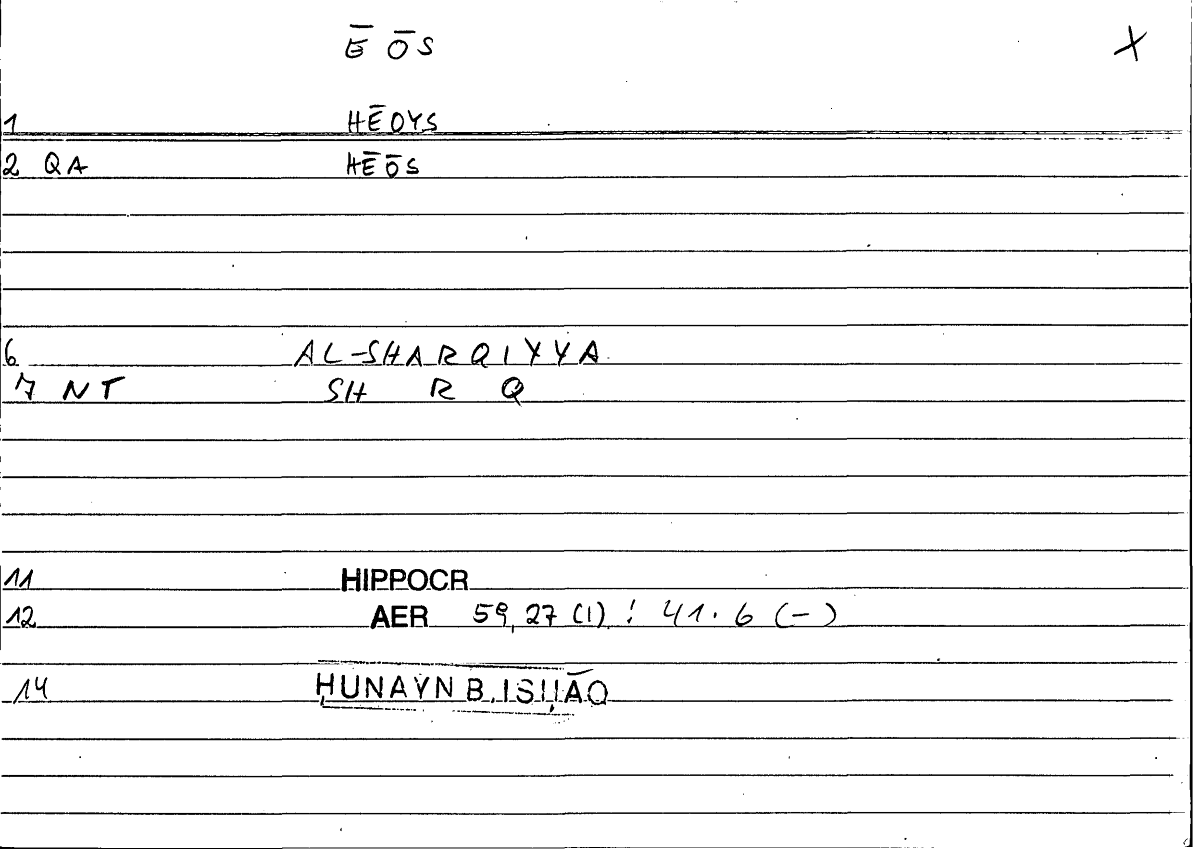 Ē ŌS X
1 HĒOYS
2 QA HĒŌS
6 AL-SHARQIYYA
7 NT SH R Q
11 HIPPOCR
12 AER 59,27 (1) : 41.6 (-)
14 ḤUNAYN B. ISḤĀQ